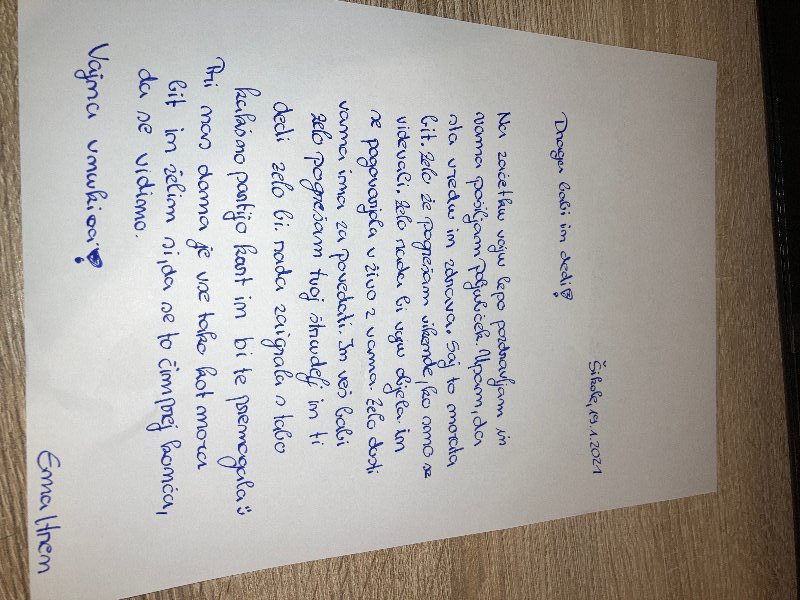 Šikole, 19.1.2021
Draga babi in dedi!
Na začetku vaju lepo pozdravljam in
vama pošiljam poljubček. Upam, da
sta vredu in zdrava. Saj to morata
bit. Zelo že pogrešam vikende, ko smo se
videvali. Zelo rada bi vaju objela in
se pogovarjala v živo z vama. Zelo dosti
vama ima za povedati. In veš babi
zelo pogrešam tvoj štrudelj in ti
dedi zelo bi rada zaigrala s tabo
kakšno partijo kart in bi te premagala
Pri nas doma je vse tako kot mora
bit in želim si, da se to čimprej konča,
da se vidimo.
Vajina vnukica!
Ema